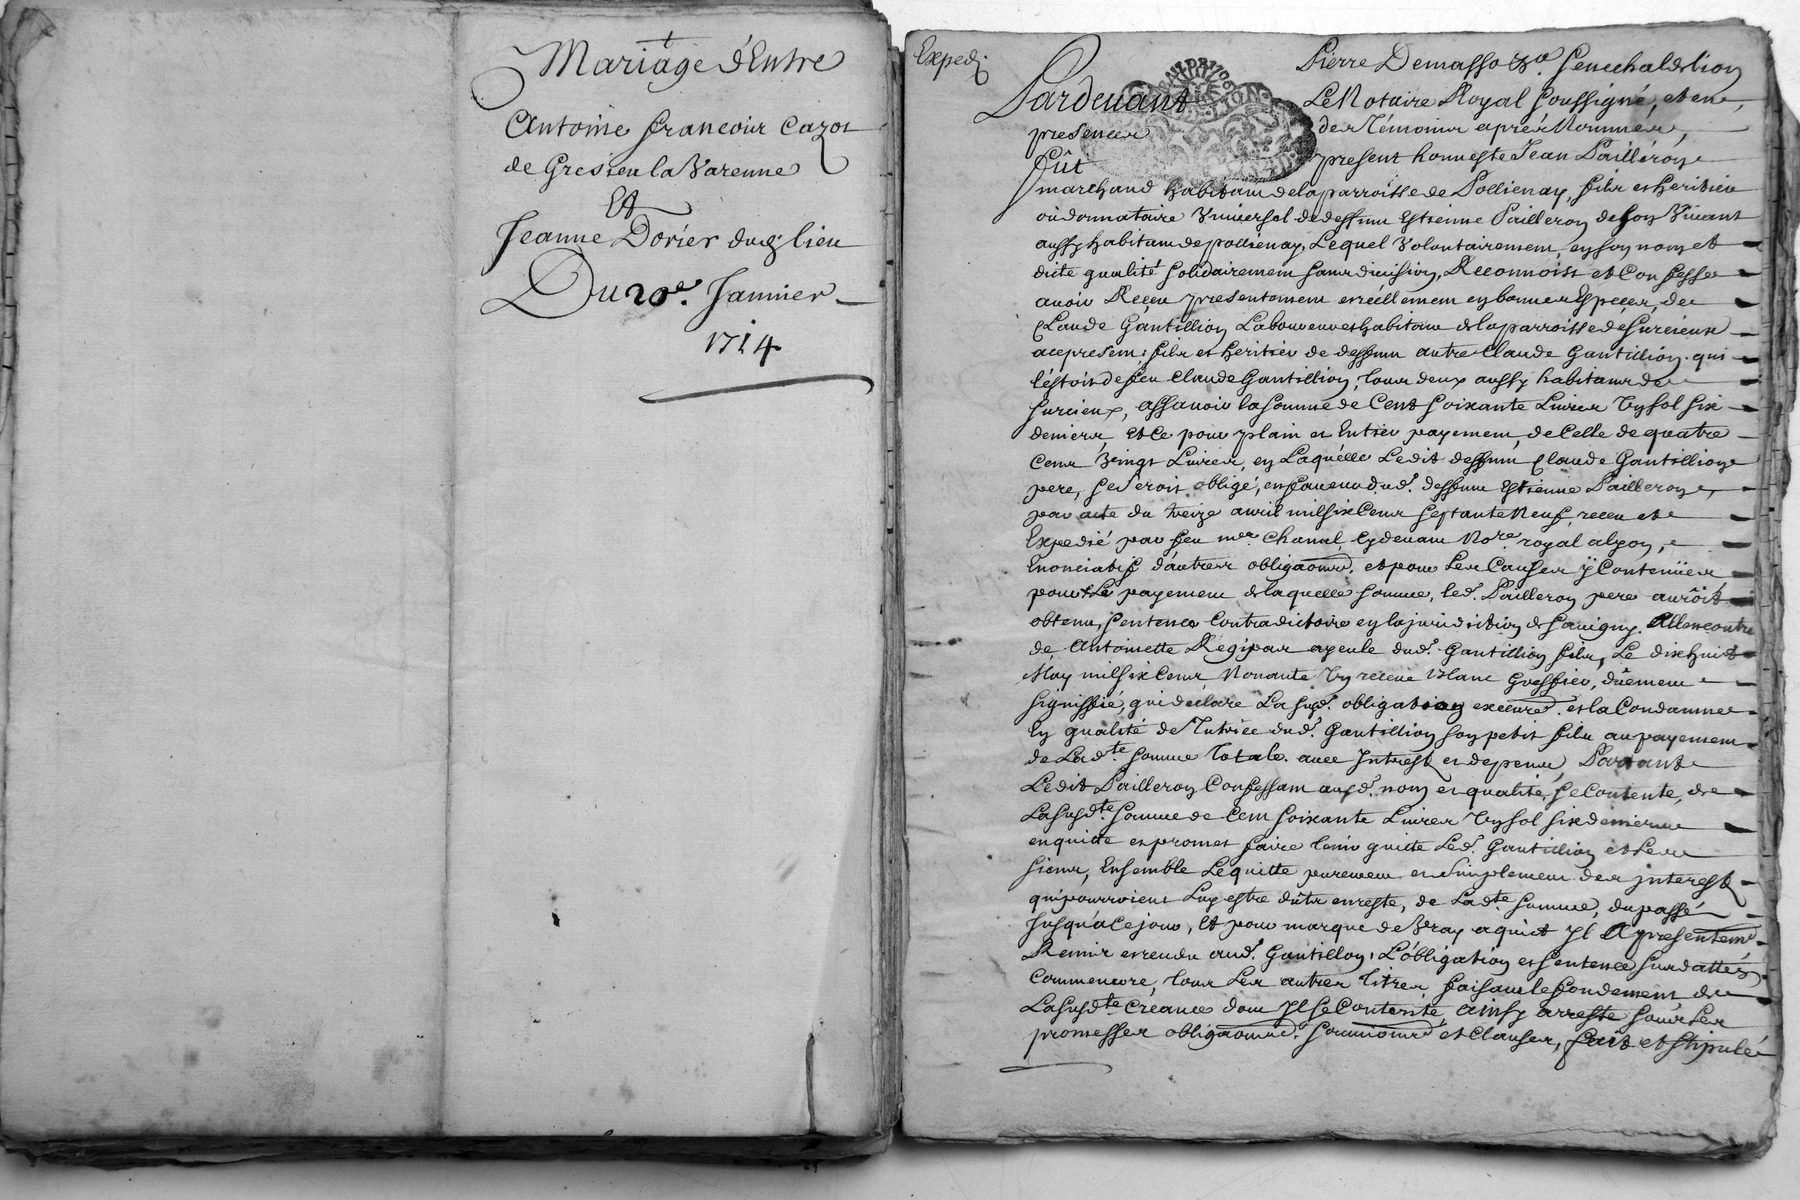 Mariage d'Entre
Antoine francois cazot
de Gresieu la Varenne
Et
Jeanne Dorier dud. lieu
Du 20e. Januier
1714
Exped.
Pierre Demasso Senechal de lion
Pardeuant Le Notaire Royal soussigné, et en
presence des Témoins aprés Nommés,
fût present honneste Jean Pailleron
marchand habitant de la parroisse de Pollienay, fils et heritier
ou donnataire Vniuersel de deffunt Estienne Pailleron de son Viuant
aussy habitant de pollienay, Lequel Volontairement, en son nom et
dicte qualité solidairement sans diuision, Reconnoist et Confesse
auoir Receu presentement et réellement en bonnes Especes, de
Claude Gantillion Laboureur et habitant de la parroisse de Surcieux
acepresent: fils et heritier de deffunt autre Claude Gantillion. qui
l'estoit de feu Claude Gantillion, tous deux aussy habitants de
surcieux, assauoir la somme de Cent soixante Liures Vn sol six
deniers, et ce pour plain et Entier payement, de Celle de quatre
Cens Vingt Liures, en Laquelle Ledit deffunt Claude Gantillion
pere, seseroit obligé, en faueur dud. deffunt Estienne Pailleron,
par acte du treize auril mil six Cens septante Neuf, receu et
Expedié par feu me. Chanal cydeuant No.re royal alyon,
Enonciatif d'autres obligaons. et pour Les Causes y Contenües
pour Le payement de laquelle somme, led. Pailleron pere auroit
obtenu, sentence Contradictoire en la juridiction de Sauigny. Allencontre
de Antoinette Regipas ayeule dud. Gantillion fils, Le dixhuict
May mil six Cens Nonante Vn receue Blanc Greffier, düement
signiffié, qui déclare La susd. obligation execure. et la Condamne
En qualité de Tutrice dud. Gantillion son petit fils au payement
de Lad.te somme Totale. auec Interest et depens, Partant
Ledit Pailleron Confessant ausd. nom et qualité, se Contente, de
La susd.te somme de Cent soixante Liures Vn sol six deniers
en quitte et promet faire tenir quitte Led. Gantillion et Les
siens, Ensemble Le quitte purement et simplement des interest
qui pourroient Luy estre dûts en reste, de Lad.te somme, du passé
Jusqu'a ce jour, Et pour marque de Vray aquict Il A presentemt.
Remis et rendu aud. Gantillon, L'obligation et sentence susdattés
Comm'encore, tous Les autres titres faisant le fondement de
La susd.te Créance dont Il se Contente, ainsy arresté sous Les
promesses obligaons. soumons. et Clauses, fait et stipulé